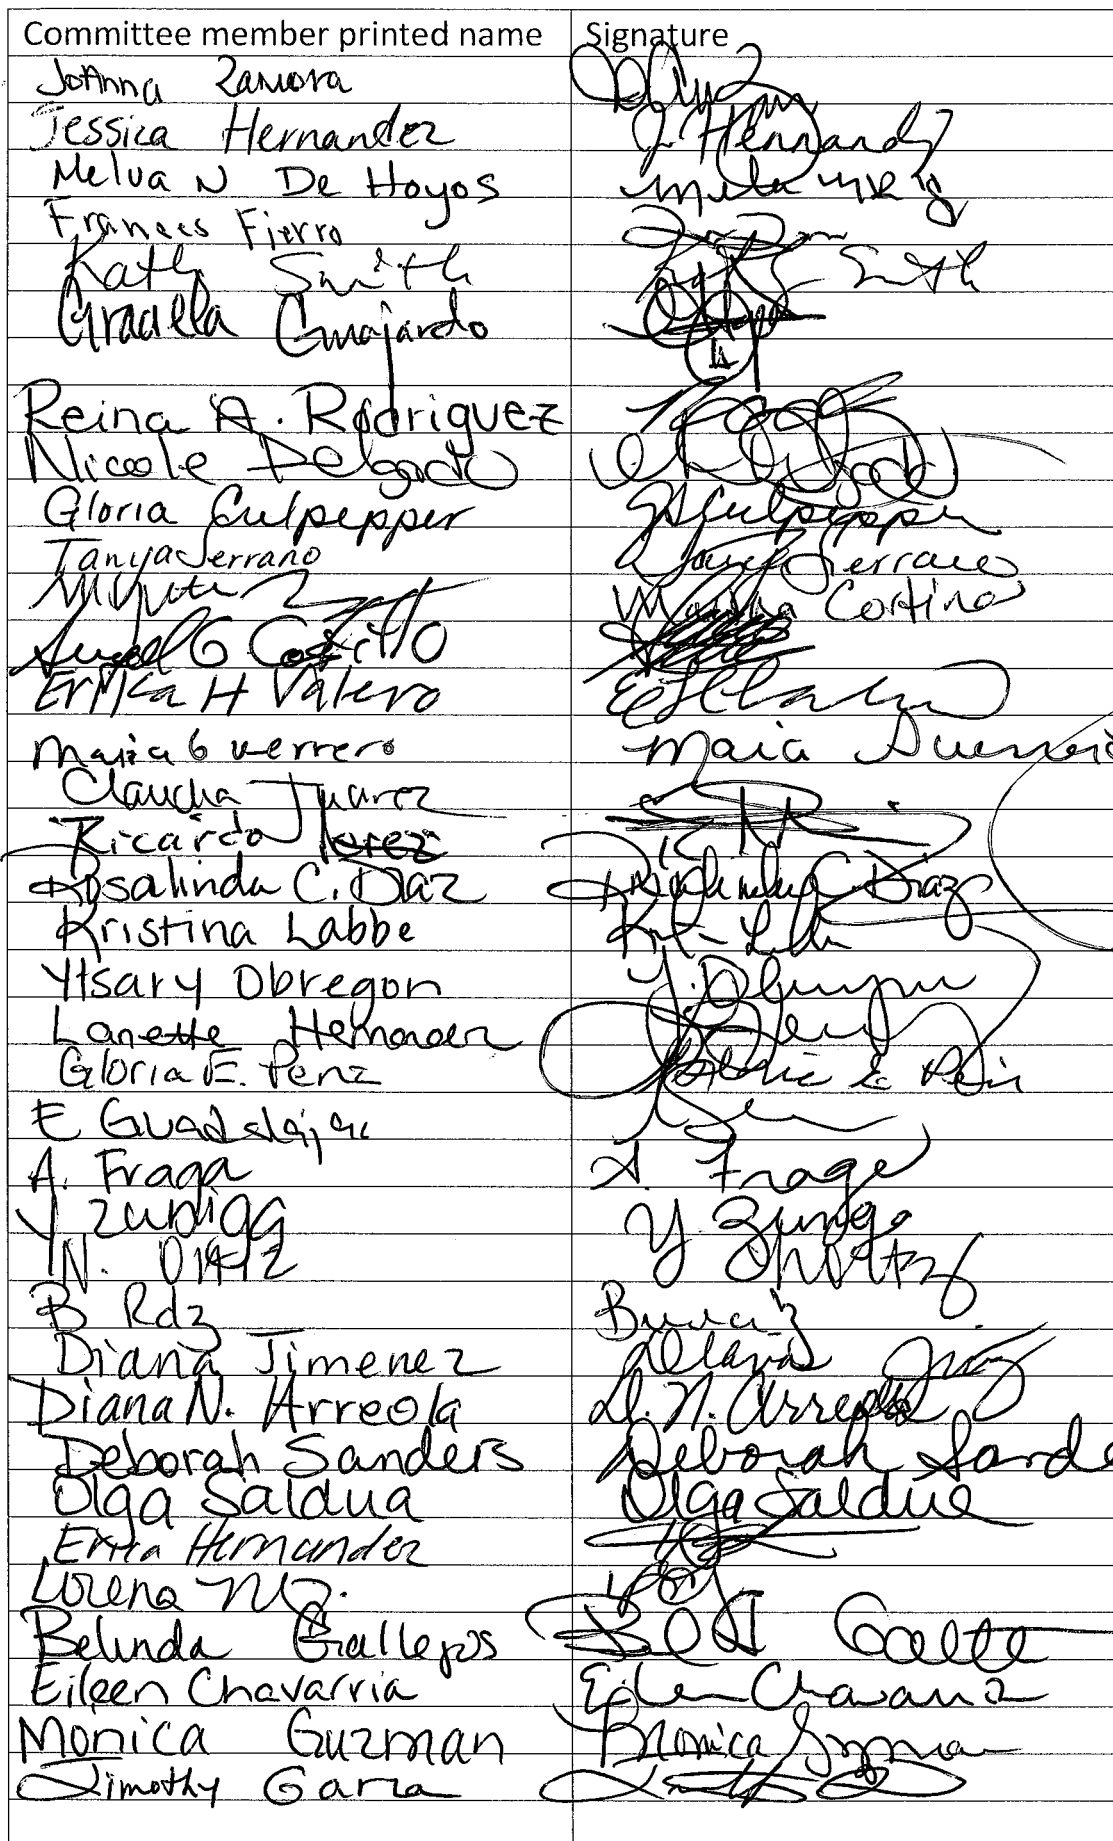 Committee member printed name Signature
JoAnna Zamora
Jessica Hernandez J. Hernandz
Melva N De Hoyos
Frances Fierro
Kathy Smith Smith
Graciela Guajardo
Reina A. Rodriguez
Nicole Delgado Delgado
Gloria Culpepper G Culpepper
Tanya Serrano Tanya Serrano
Martha Cortinas
Angel G Castillo
Erika H Valero
Maria Guerrero Maria Guerrero
Claudia Juarez
Ricardo Perez
Rosalinda C. Diaz Rosalinda C Diaz
Kristina Labbe
Ytsary Obregon Y. Obregon
Lanette Hernandez
Gloria E. Penz Gloria E.
E Guadalajara
A. Fraga A. Fraga
Y Zuniga Y Zuniga
N. Ortiz N Ortiz
B Rdz
Diana Jimenez Diana
Diana N. Arreola D. N. Arreola
Deborah Sanders Deborah Sande
Olga Saldua Olga Saldua
Erika Hernandez
Lorena Mz.
Belinda Gallegos
Eileen Chavarria Eileen Chavarria
Monica Guzman Monica Guzman
Timothy Garza